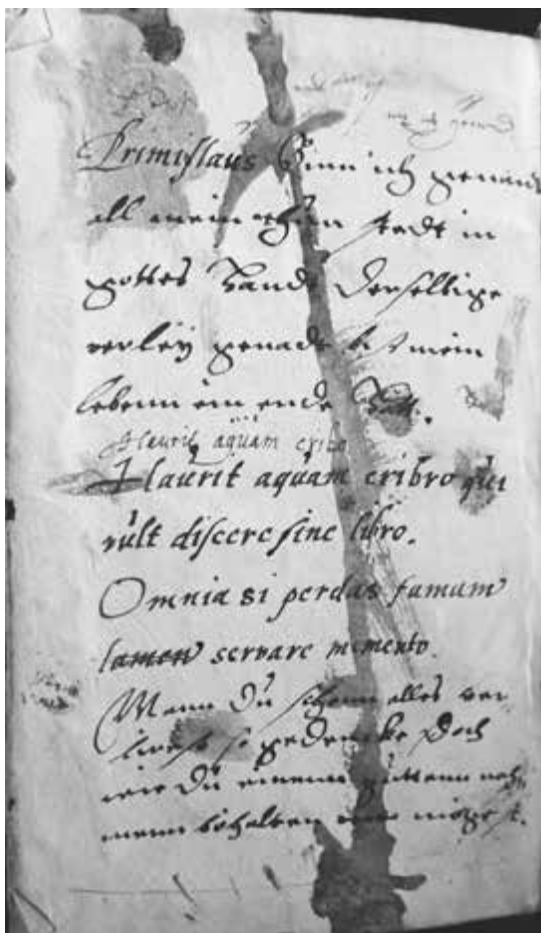 Primislaus Binn ich genandt
all mein thun stedt in
gottes Hande Derselbige
verley genade bis mein
lebenn ein ende Hatt.
Haurit aquam cribro
Haurit aquam cribro qui
vult discere sine libro.
Omnia si perdas famam
tamen servare memento.
Wann Du schonn alles ver
lierest so gedencke Doch
wie Du einenn guttenn nah
menn behalten mögest.